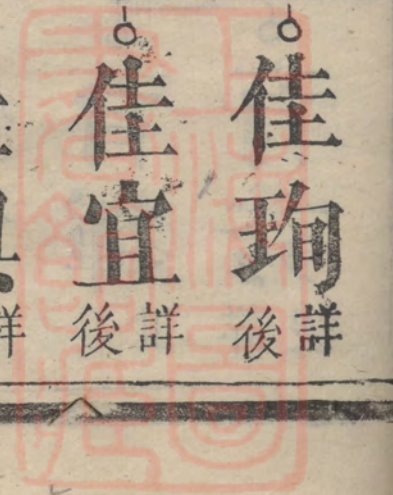 佳珣詳後
佳宜詳後